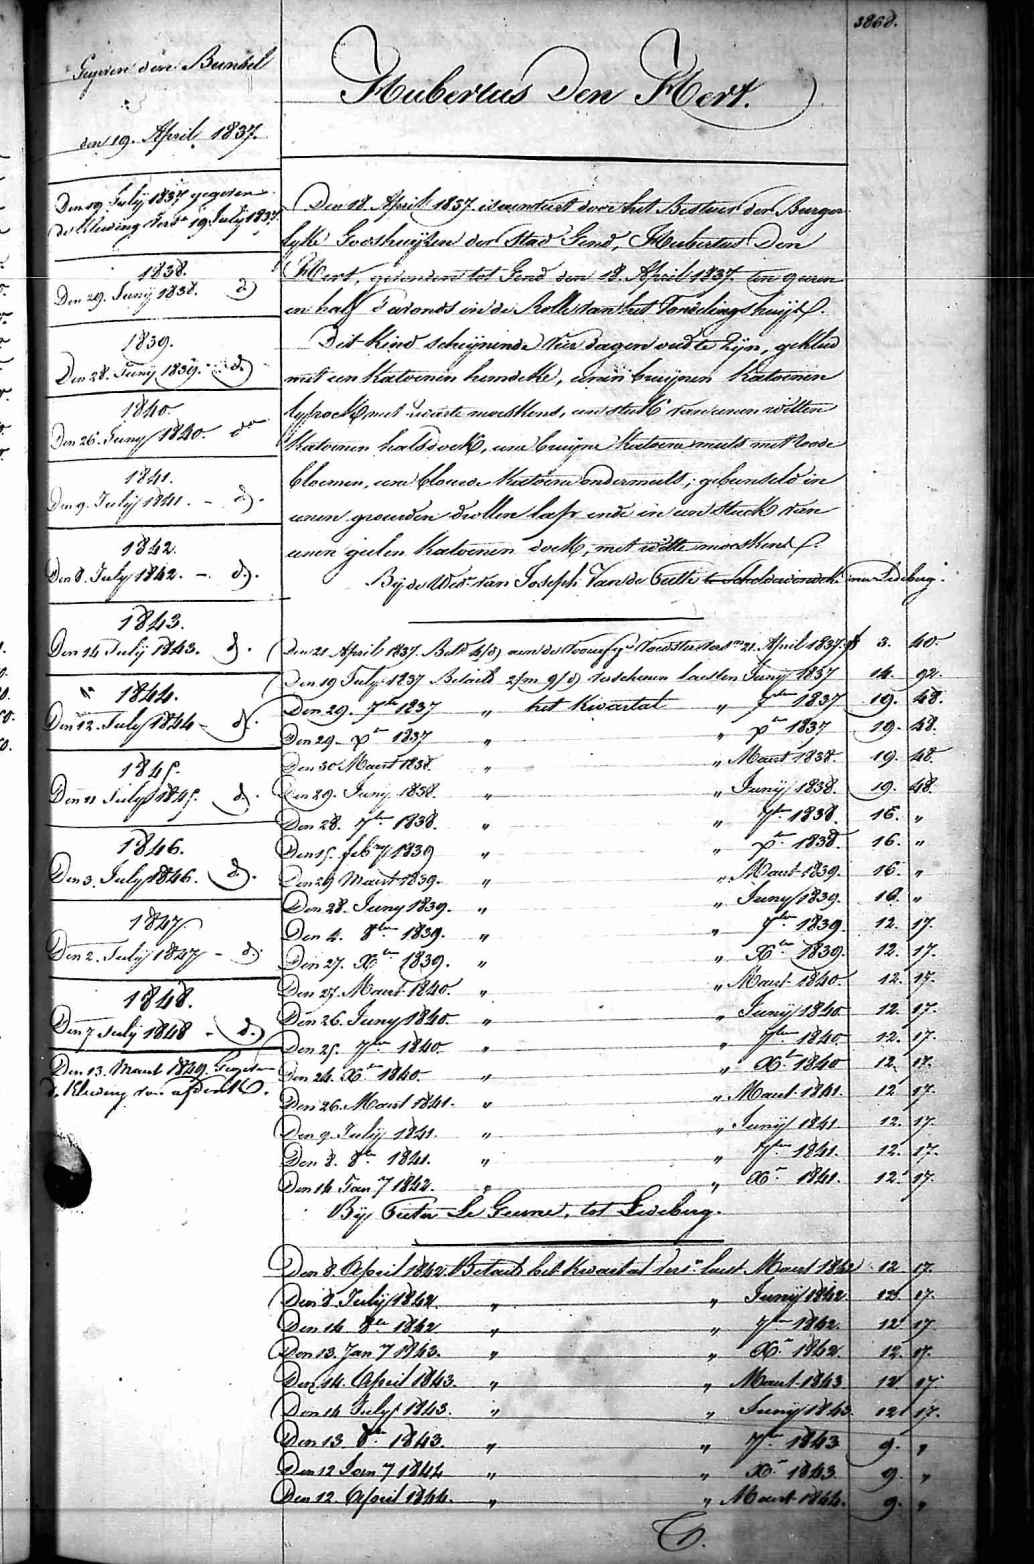 3868.
Gegeven den Bundel
den 19. April 1837.
Den 19 July 1837 gegeven
de kleeding vers. 19 July 1837.
1838.
Den 29. Junij 1838. d)
1839.
Den 28. Junij 1839. - d)
1840.
Den 26. Juny 1840.
1841.
Den 9. July 1841. - d).
1842.
Den 8. July 1842. - d).
1843.
Den 14 July 1843. d).
1844.
Den 12. July 1844 - d).
1845.
Den 11 July 1845. d).
1846.
Den 3. July 1846. d).
1847
Den 2. July 1847 - d).
1848.
Den 7 July 1848 - d.)
Den 13. Maart 1849. Gegeven
de kleeding van
Hubertus Den Hert.
Den 18. April 1837. is door het Bestier der Burger
lyke Godshuijzen der Stad Gend, Hubertus Den
Hert, gevonden tot Gend den 18. April 1837. ten geren
en half s'avonds in de Rolle van het Vondelingshuijs.
Dit Kind schijnende vier dagen oud te zyn, gekleed
met een katoenen hemdeke, eenen bruijnen katoenen
lyfrock met witte moeskens, een stuk van eenen witten
katoenen halsdoeck, eene bruijne katoene muts met roode
bloemen, eene blouwe katoene ondermuts, gebunseld in
eenen grouwen drollen lap ende in een stuck van
eenen geelen katoenen doeck, met witte moeskens.
Bij de Wed. van Joseph Van de Putte te Ledeberg.
Den 21 April 1837. Bet. aen de Voedster 21. April 1837. 3. 40.
Den 19 July 1837 Betaeld 2/m 9/d) verschenen laesten Juny 1837 14. 92.
Den 29. 7ber 1837 " het Kwartal " 7ber 1837 19. 48.
Den 29. xr 1837 " " xr 1837 19. 48.
Den 30 Maert 1838. " " Maert 1838. 19. 48.
Den 29. Juny 1838. " " Junij 1838. 19. 48.
Den 28. 7ber 1838. " " 7ber 1838. 16. "
Den 15. feby 1839 " " xr 1838. 16. "
Den 29 Maert 1839. " " Maert 1839. 16. "
Den 28. Juny 1839. " " Juny 1839. 16. "
Den 4. 8ber 1839. " " 7ber 1839. 12. 17.
Den 27. Xber 1839. " " Xber 1839. 12. 17.
Den 27. Maert 1840. " " Maert 1840. 12. 17.
Den 26. Juny 1840. " " Junij 1840. 12. 17.
Den 25. 7ber 1840. " " 7ber 1840. 12. 17.
Den 24. Xber 1840. " " Xr 1840 12. 17.
Den 26. Maert 1841. " " Maert 1841. 12 17.
Den 9. July 1841. " " Junij 1841. 12. 17.
Den 8. 8ber 1841. " " 7ber 1841. 12. 17.
Den 14 Jan 7 1842. " " Xr 1841. 12. 17.
Bij Pieter Le Geune, tot Ledeberg.
Den 8. April 1842. Betaeld het Kwartal vers. laest Maert 1842 12 17.
Den 8 July 1842. " " Junij 1842. 12. 17.
Den 14 8ber 1842 " " 7ber 1842. 12 17.
Den 13. Jan 7 1843. " " Xr 1842. 12. 17.
Den 14. April 1843. " " Maert 1843 12 17
Den 14 July 1843. " " Junij 1843. 12 17.
Den 13 8r 1843. " " 7r 1843 9. "
Den 12 Jan 7 1844 " " Xr 1843. 9. "
Den 12 April 1844. " " Maert 1844. 9. "